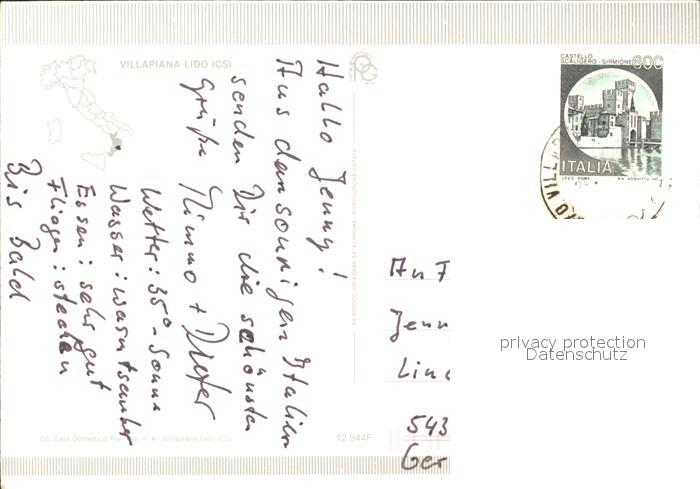 VILLAPIANA LIDO (CS)
Hallo Jenny!
Aus dem sonnigen Italien
senden Dir die schönsten
Grüße Mimmo + Dieter
Wetter: 35° - Sonne
Wasser: warm + sauber
Essen: sehr gut
Fliegen: stechen
Bis Bald
Ed. Cala Domenico
n. 4 - Villapiana Lido (CS)
12.944F
CASTELLO
SCALIGERO - SIRMIONE
600
ITALIA
I.P.Z.S. ROMA
An F
Jenn
Lin
543
Ger
privacy protection
Datenschutz